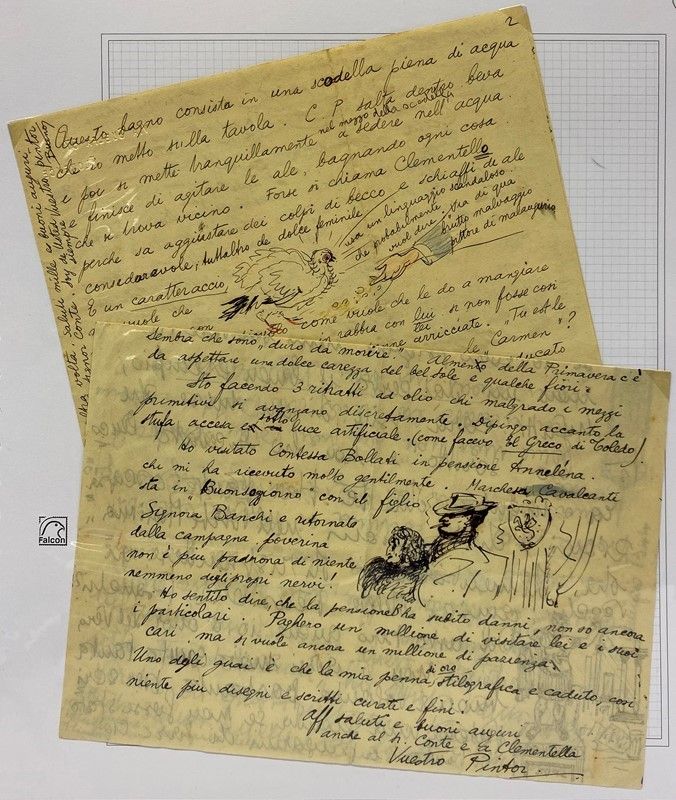 2
Questo bagno consista in una scodella piena di acqua
che io metto sulla tavola. C. P. salta dentro beva
nel mezzo della scodella
e poi si mette tranquillamente a sedere nell'acqua.
e finisce di agitare le ale, bagnando ogni cosa
che si trova vicino. Forse si chiama Clementello
perche sa aggiustare dei colpi di becco e schiaffi di ale
consederavole, tutt'altro de dolce feminile
usa un linguaggio scandaloso.
che probabilmente
vuol dire: "Via di qua
brutto malvaggio
pittore di malaugurio
E un caratteraccio
vuole che come vuole che le do a mangiare
con in rabbia con lui, si non fosse con
lei
penne arricciate. "Tu est le
le Carmen"?
Saluti mille e buoni auguri
Vostro Pintor
Sembra che sono "duro da morire". Almento della Primavera c'è
da aspettare una dolce carezza del bel Sole e qualche fiori.
Sto facendo 3 ritratti ad olio chi malgrado i mezzi
primitivi si avanzano discretamente. Dipingo accanto la
stufa accesa sotto luce artificiale. (come facevo El Greco di Toledo).
Ho visitato Contessa Bollati in pensione Annalena.
chi mi ha ricevuto molto gentilmente. Marchesa Cavalcante
sta in "Buonsoggiorno" con il figlio
Signora Banchi e ritornato
dalla campagna, poverina
non è piu padrona di niente
nemmeno degli propri nervi!
Ho sentito dire, che la pensione B ha subito danni, non so ancora
i particolari. Paghero un millione di visitare lei e i suoi
cari, ma si vuole ancora un millione di pazienza.
Uno degli guai è che la mia penna di oro stilografica e caduto, cosi
niente piu disegni e scritti curate e fini.
Aff saluti e buoni auguri
anche al S. Conte e a Clementella
Vuestro Pintor.
Falcon